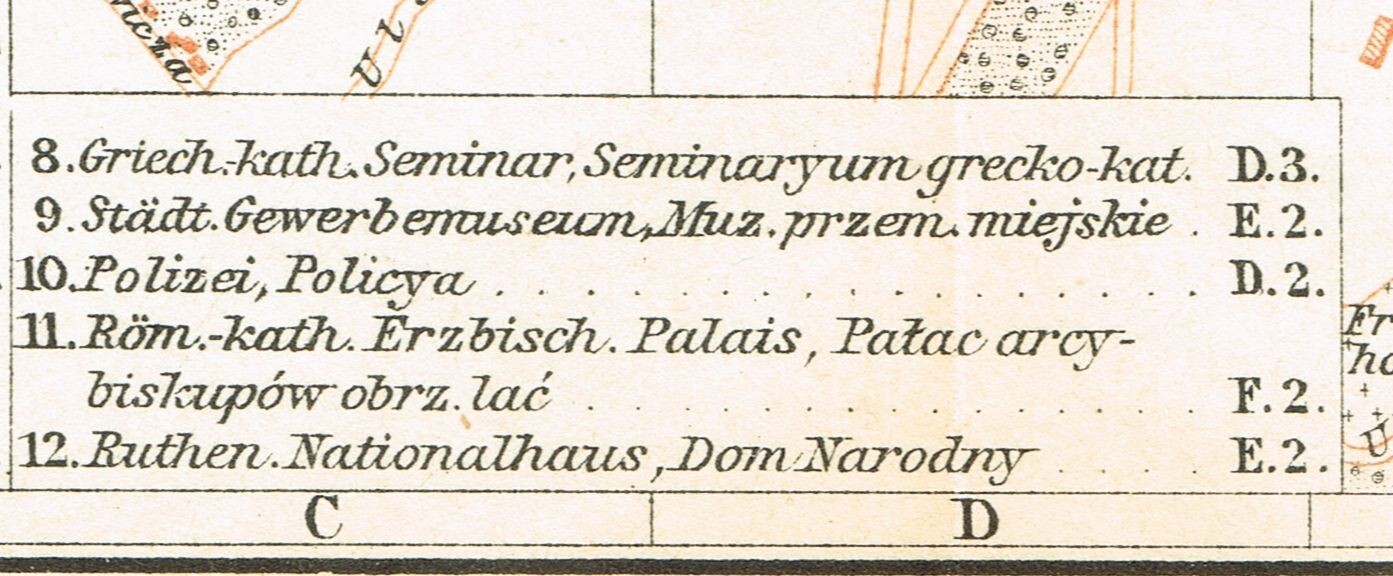 icza
Ul
8. Griech.-kath. Seminar, Seminaryum grecko-kat. D.3.
9. Städt. Gewerbemuseum, Muz. przem. miejskie . E.2.
10. Polizei, Policya . . . . . . . . . . . . . . . . D.2.
11. Röm.-kath. Erzbisch. Palais, Pałac arcy-
biskupów obrz. lać . . . . . . . . . . . . . . F.2.
12. Ruthen. Nationalhaus, Dom Narodny . . . . E.2.
Fr
ho
U
C D